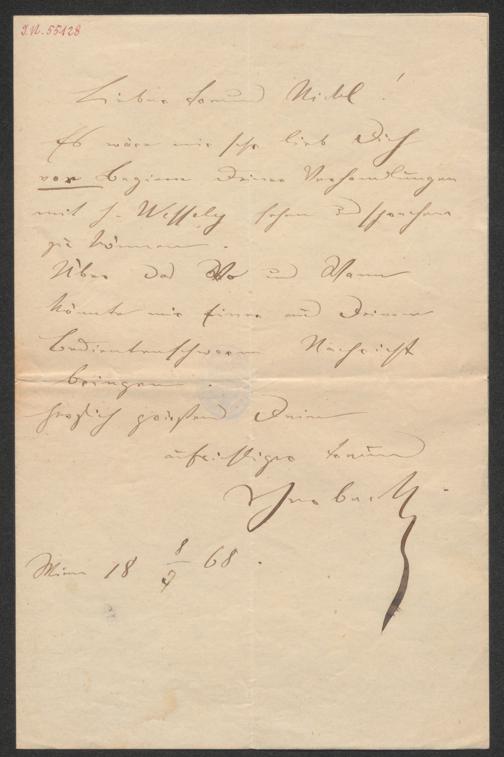 I.N. 55128
Lieber Freund Nidl!
Es wäre mir sehr lieb Dich
vor Beginn Deiner Verhandlungen
mit H. Wessely sehen u sprechen
zu können.
Über das Wo und Wann
könnte mir Einer aus Deinem
Bedientenschwarm Nachricht
bringen.
Herzlich grüßend Dein
aufrichtiger Freund
Wien 18 8/7 68.